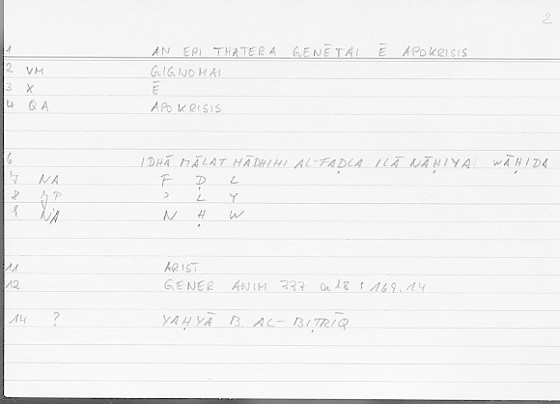 2
1 AN EPI THATERA GENĒTAI Ē APOKRISIS
2 VM GIGNOMAI
3 X Ē
4 QA APOKRISIS
6 IDHĀ MĀLAT HĀDHIHI AL-FAḌLA ILĀ NĀḤIYA WĀḤIDA
7 NA F Ḍ L
8 JP ʾ L Y
9 NA N Ḥ W
11 ARIST
12 GENER ANIM 777 a 18 : 169.14
14 ? YAḤYĀ B. AL-BIṬRĪQ